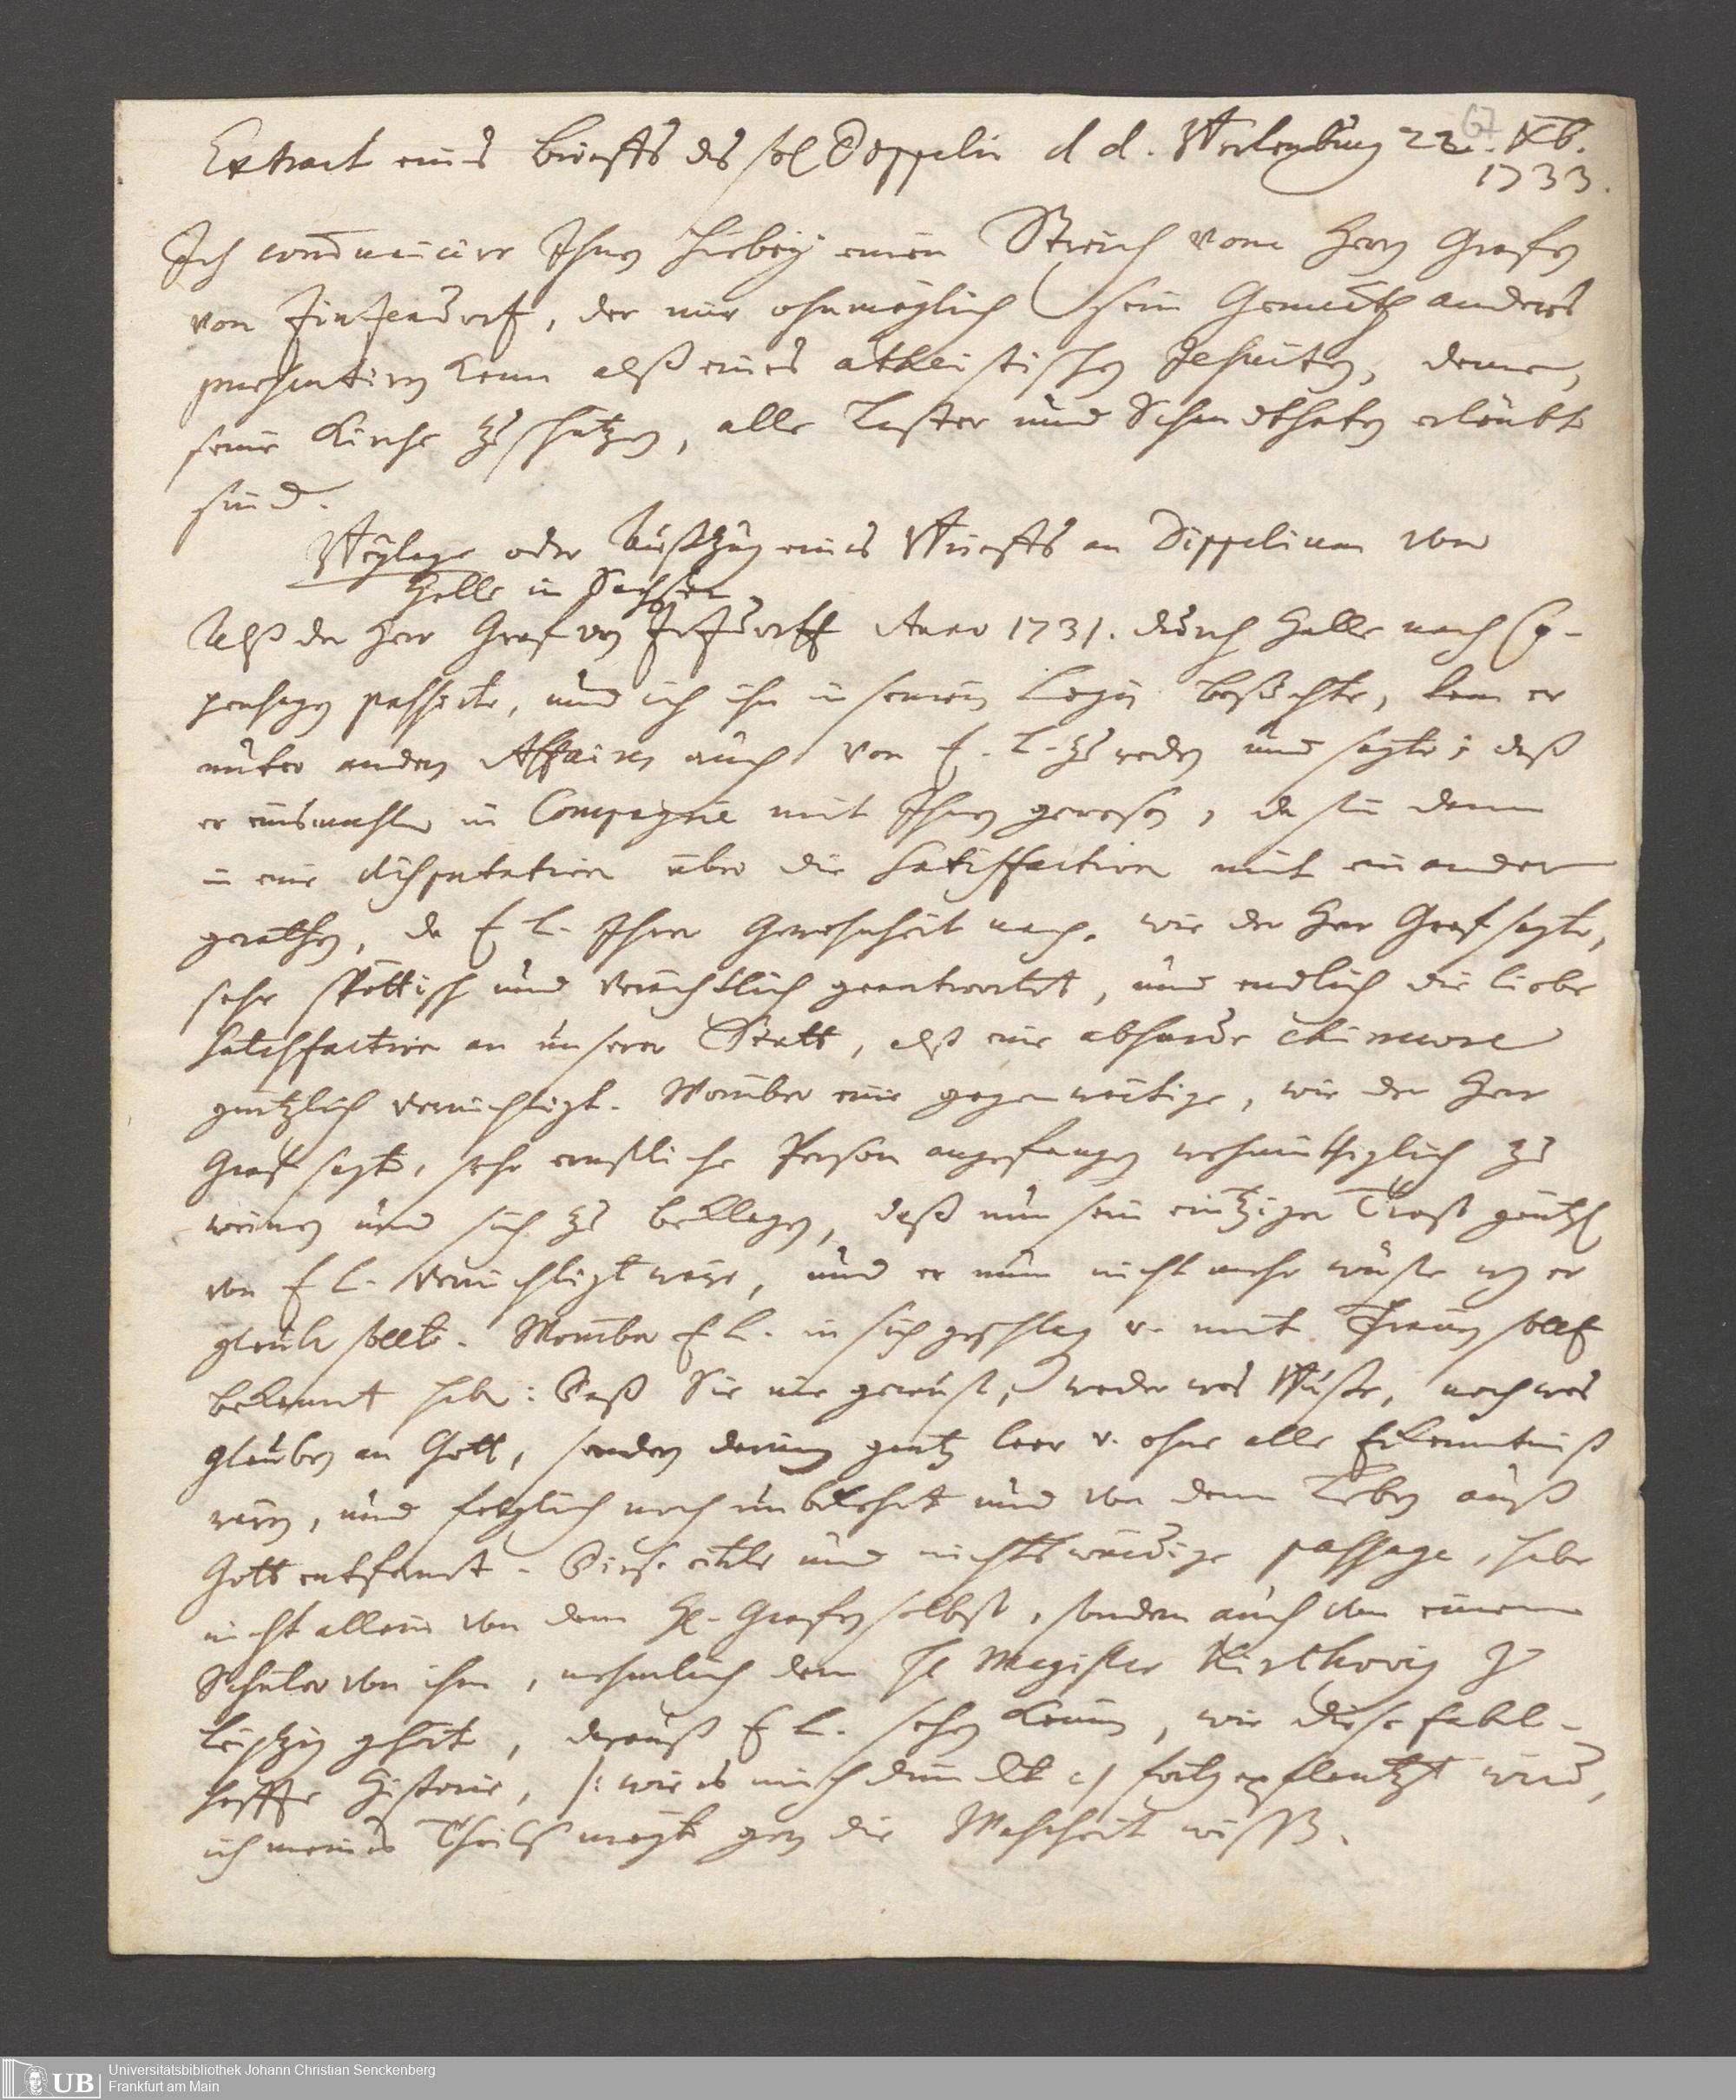 67
Extract eines Brieffs des sel Dippelii d d. Berlenburg 22. Xb.
1733.
Ich com̄unicire Ihnen hiebey einen Streich vom Herrn Grafen
von Zinzendorf, der mir ohnmöglich sein Gemüth anders
præsentiren kann alß eines atheistischen Jesuiten, deme,
seine Kirche zu schützen, alle Laster und Schandthaten erlaubt
sind.
Beylage oder Außzug eines Brieffs an Dippelium von
Halle in Sachsen.
Alß der Herr Graf von Zinzendorff Anno 1731. durch Halle nach Co-
penhagen passirte, und ich ihn in seinem Logis besuchte, kam er
unter andern Affairen auch von E. L. zu reden und sagte; daß
er einsmahls in Compagnie mit Ihnen gewesen, da sie dann
in eine disputation über die Satisfaction mit einander
gerathen, da E L. Ihrer Gewohnheit nach, wie der Herr Graf sagte,
sehr spöttisch und verächtlich geantwortet, und endlich die liebe
Satisfaction an unserer Statt, alß eine absurde chimære
gäntzlich vernichtigt. Worüber eine gegenwärtige, wie der Herr
Graf sagte, sehr ernstliche Person angefangen wehmüthiglich zu
weinen und sich zu beklagen, daß nun sein eintziger Trost gäntzl
von E L. vernichtigt wäre, und er nun nicht mehr wüste was er
glauben sollte. Worüber E L. in sich geschlagen u. mit Thränen sollen
bekannt haben: Daß Sie nie gewust, weder was Busse, noch was
Glauben an Gott, sondern darinn gantz leer u. ohne alle Erkenntniß
wären, und folglich noch unbekehrt und von dem Leben auß
Gott entfernt. Diese eitle und nichtswürdige passage, habe
nicht allein von dem H. Grafen selbst, sondern auch von einem
Schüler von ihm, nehmlich dem H Magister zu
Leipzig gehört, darauß E L. sehen können, wie diese fabel-
haffte Historie, /: wie es mich dünckt :/ fortgepflantzt wird,
ich meines Theils mögte gern die Wahrheit wissen.
UB
Universitätsbibliothek Johann Christian Senckenberg
Frankfurt am Main